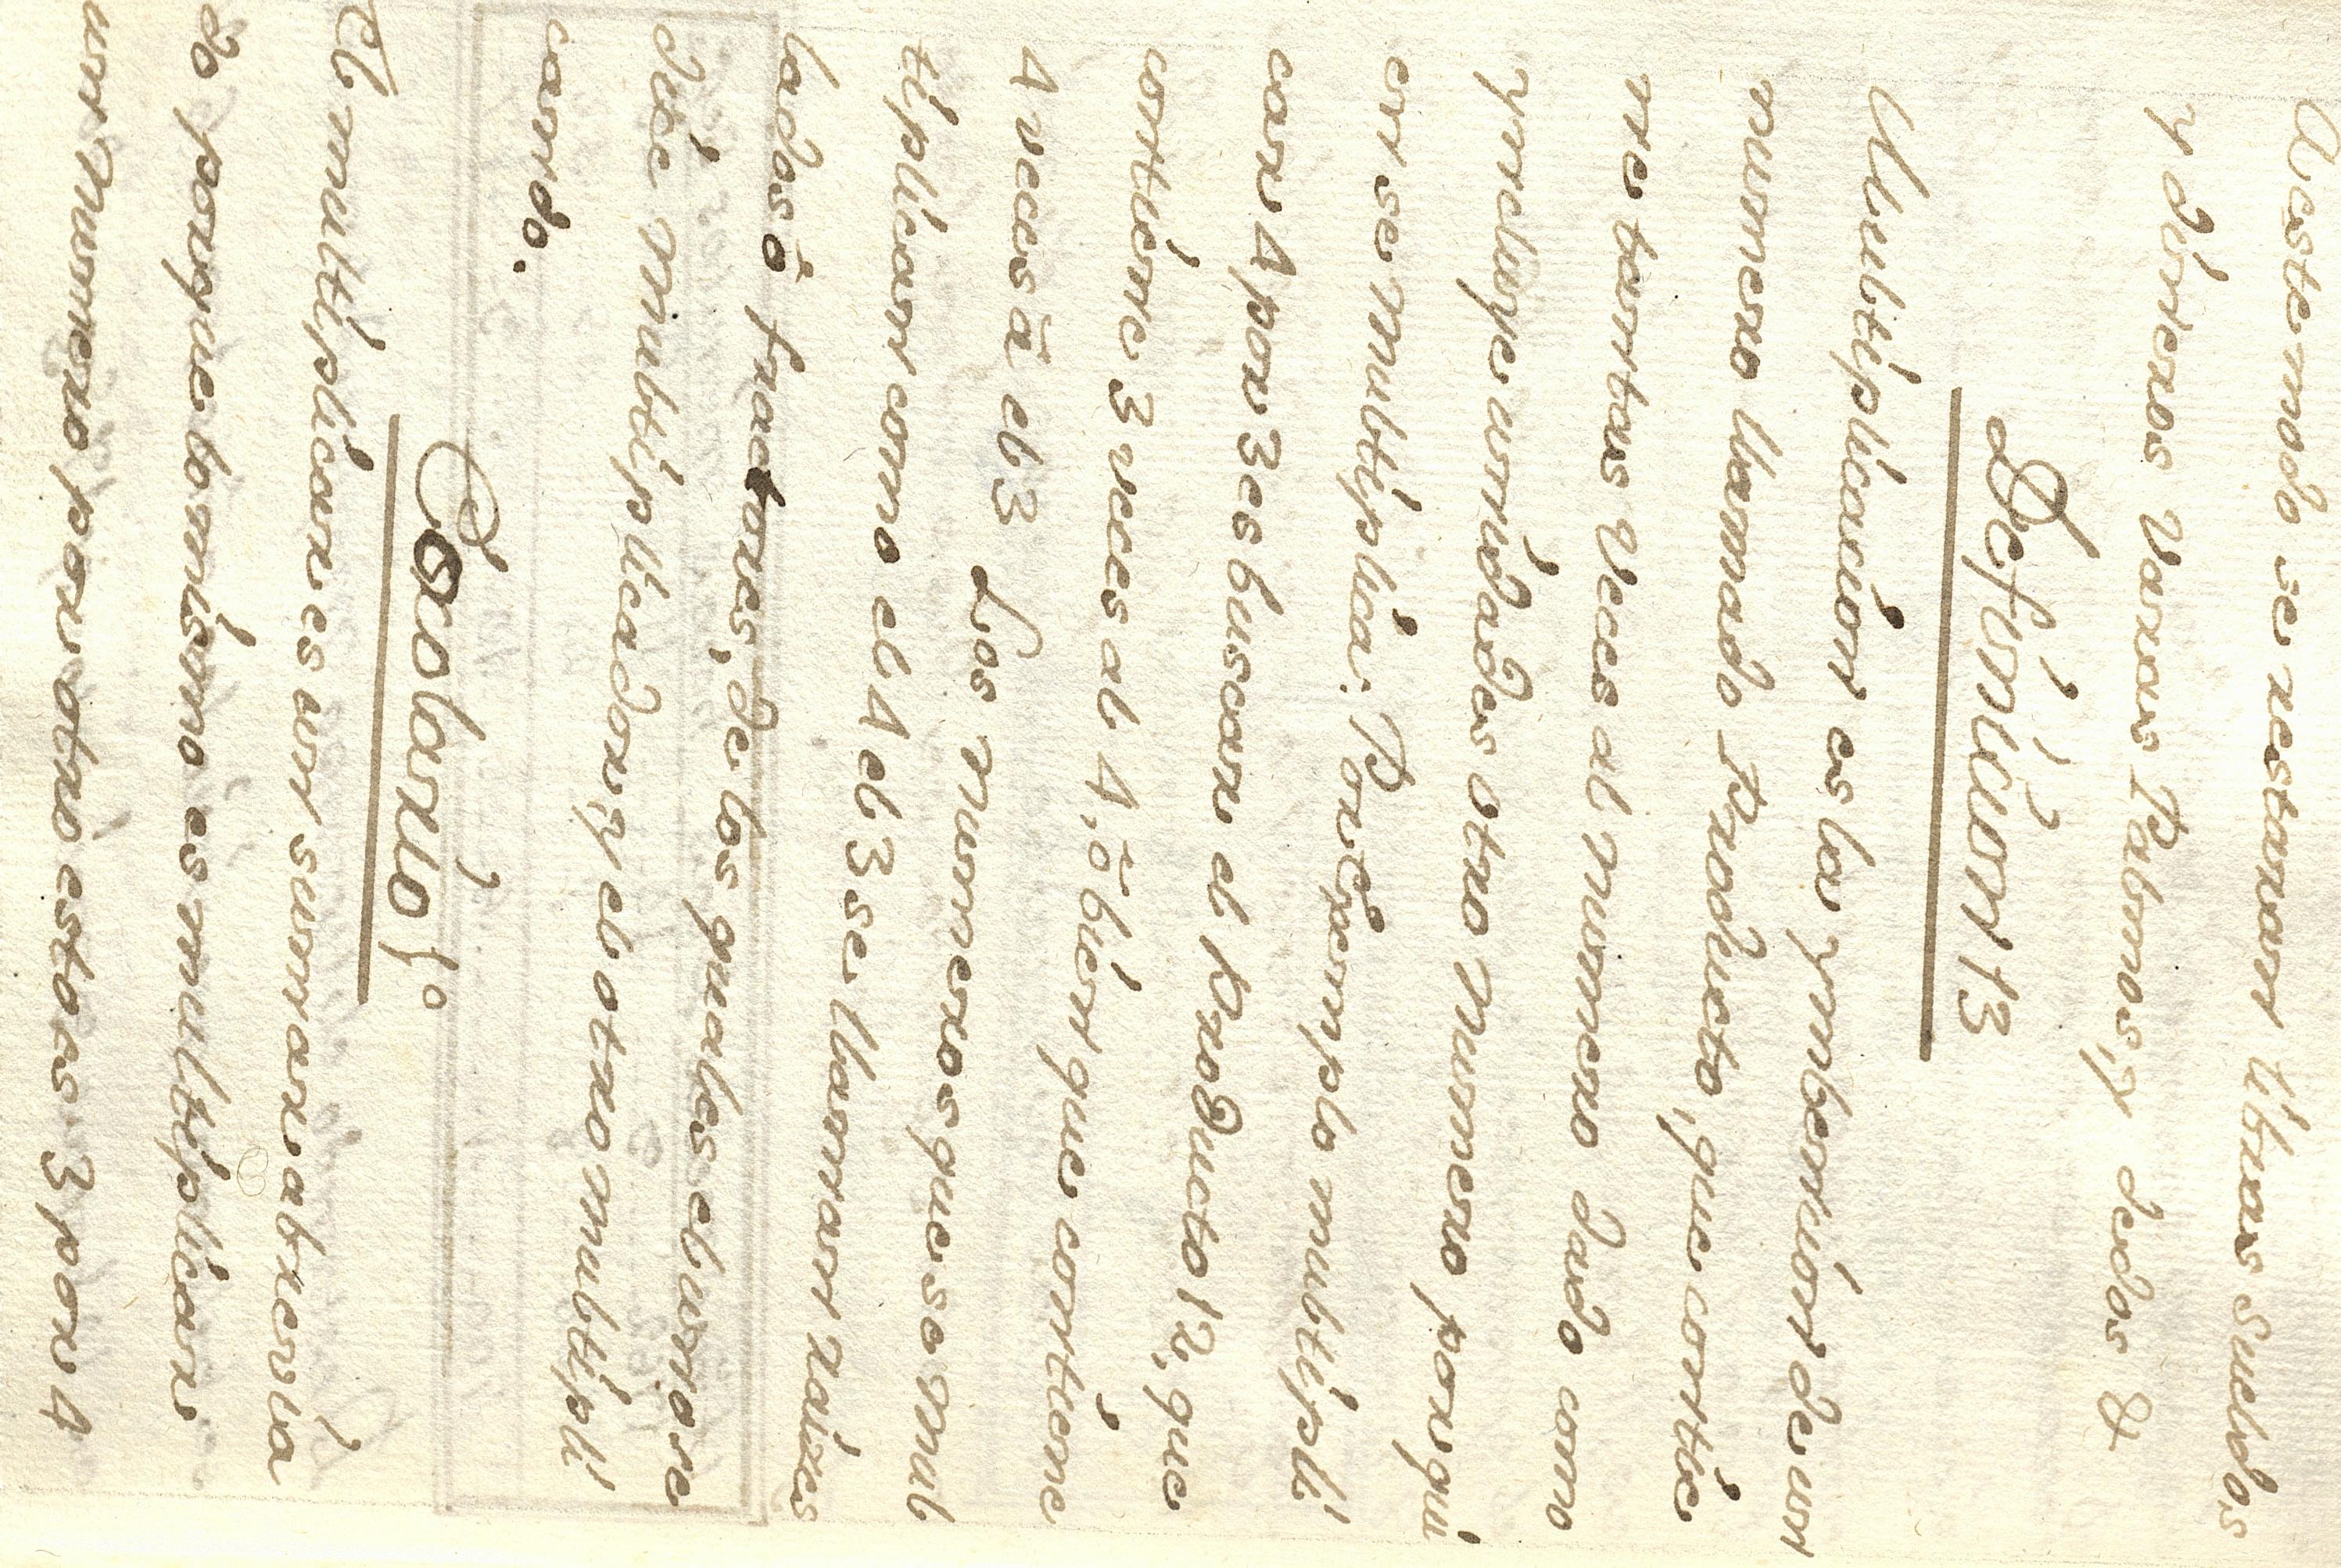 Aeste modo se restaran libras sueldos
y dineros Varas Palmos, y dedos &
Definicion 13
Multiplicacion es la ynbencion de un
numero llamado Producto, que contie
ne tantas Veces al numero dado como
yncluye unidades otro numero por qui
en se multiplica. Por Exemplo multipli
car 4 por 3 es buscar el Producto 12, que
contiene 3 veces al 4, ò bien que contiene
4 veces à el 3 Los numeros que se mul
tiplican como el 4 el 3 se llaman raizes
lados ò factores, de los quales el uno se
dice Multiplicador, y el otro multipli
cando.
Corolario 1º
El multiplicar es un sumar abrevia
do porque lo mismo es multiplicar
un Numero por otro estoes 3 por 4